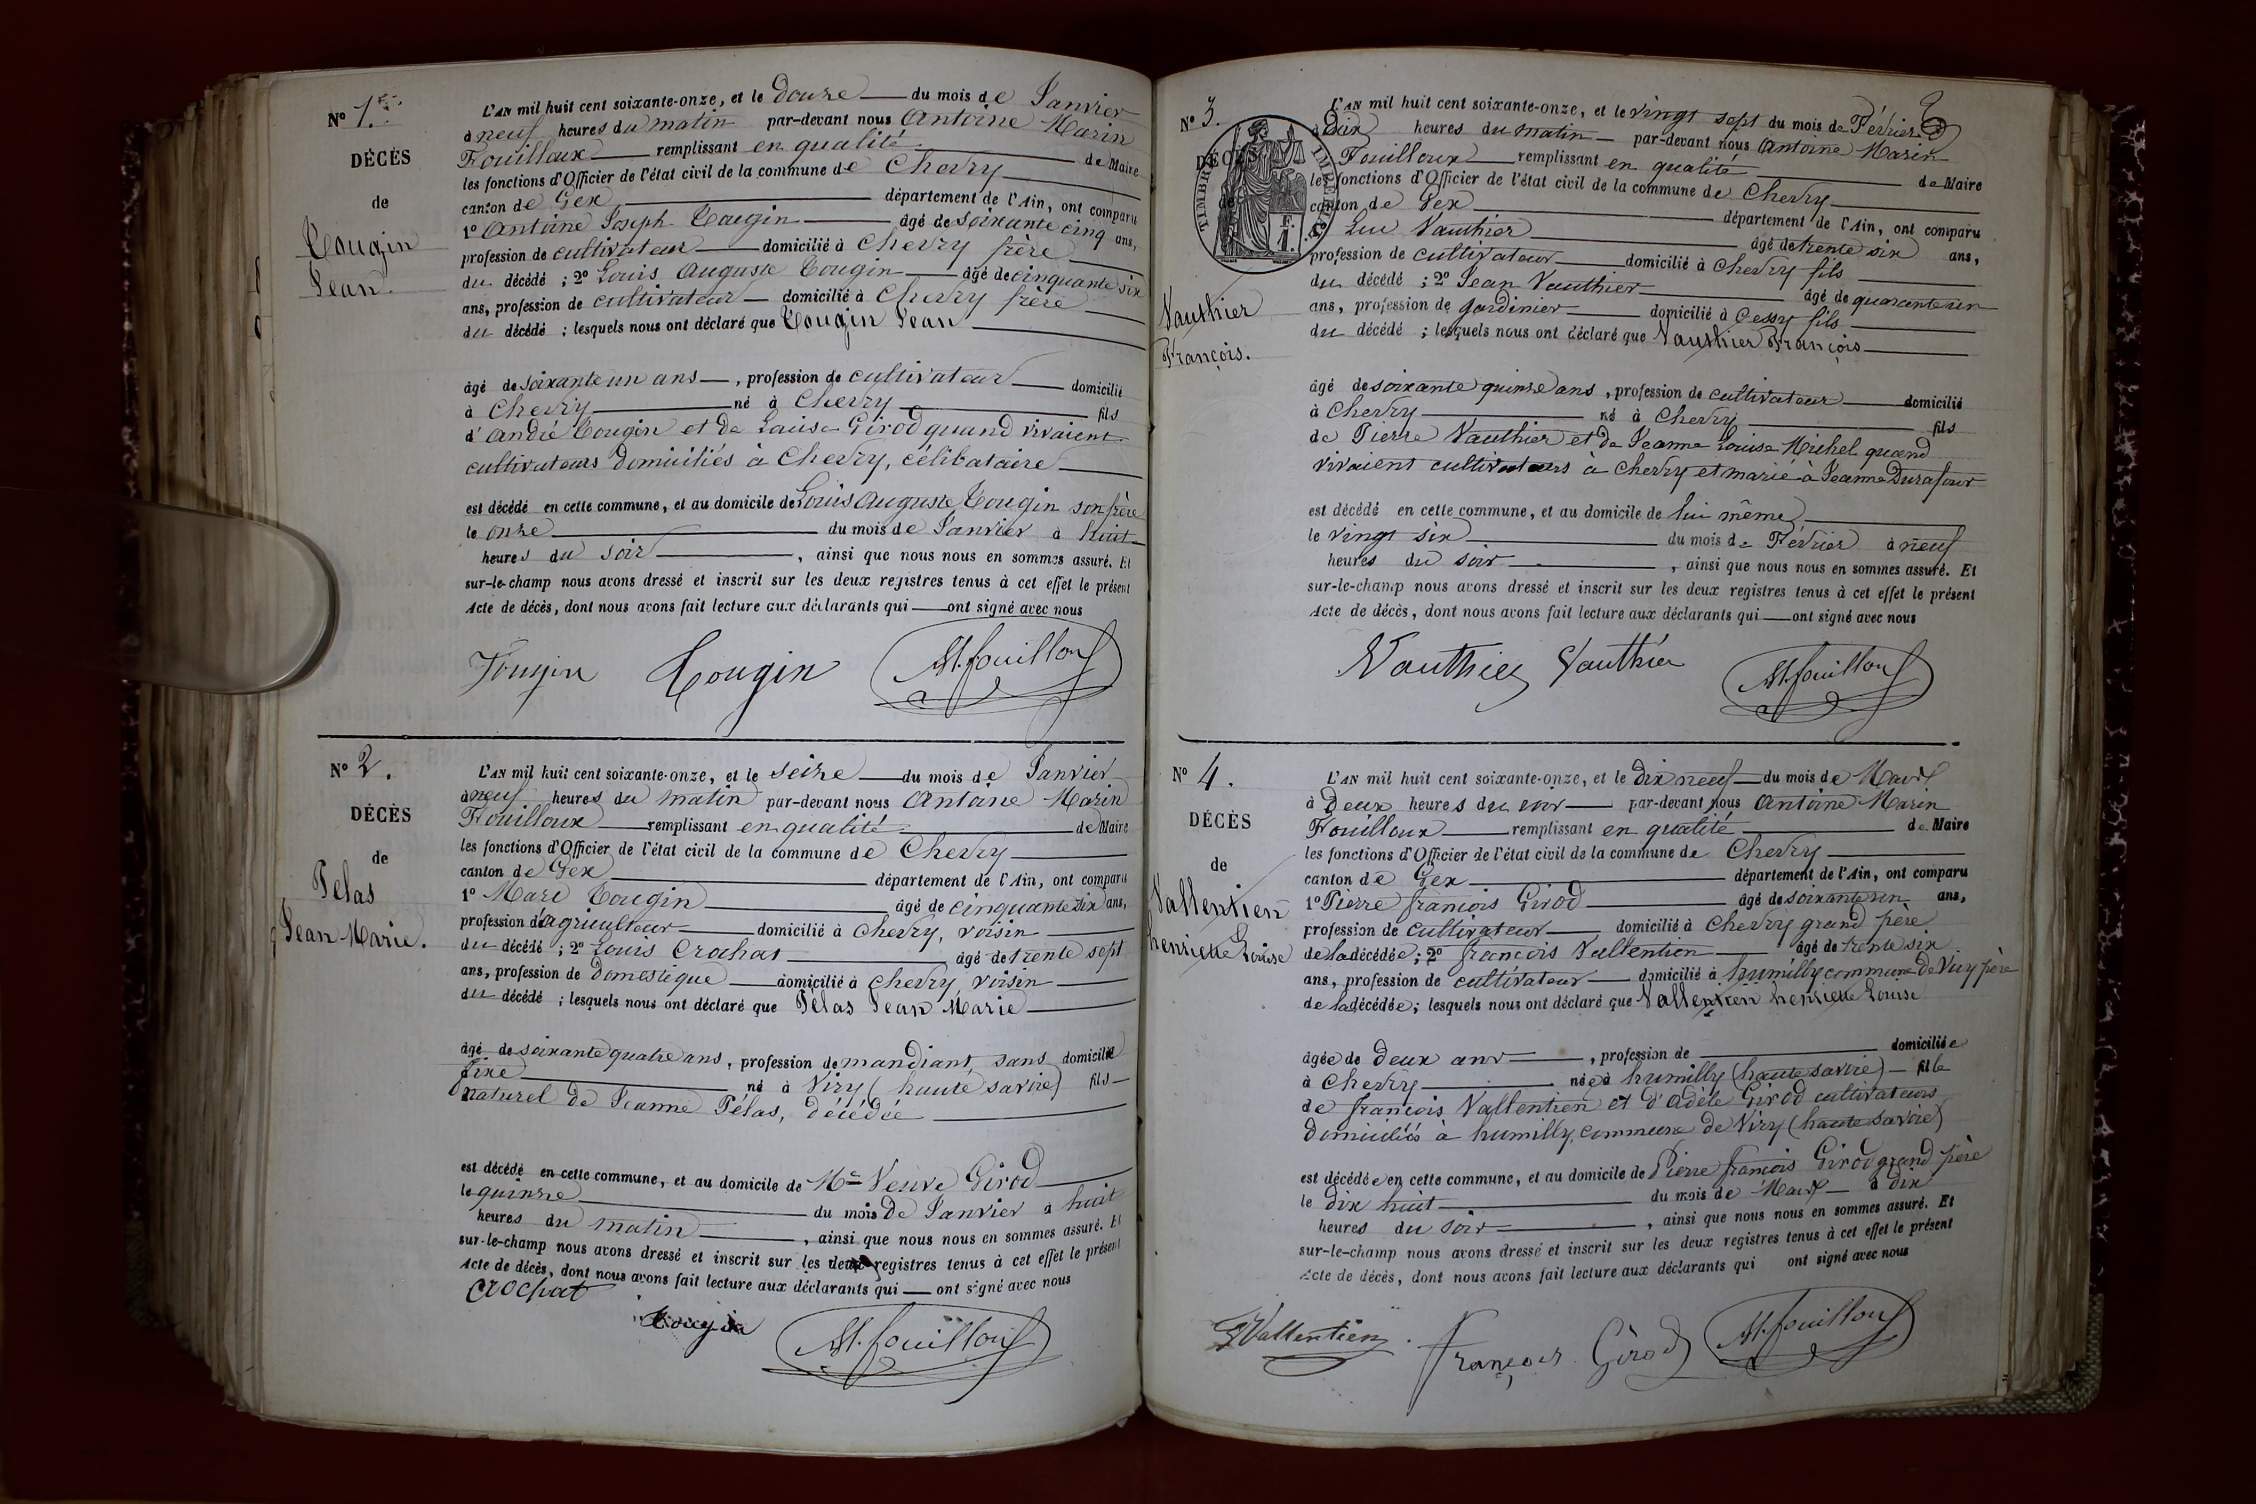 N° 1.er
DÉCÈS
de
Tougin
Jean.
L'AN mil huit cent soixante-onze, et le Douze du mois de Janvier
à neuf heures du matin par-devant nous Antoine Marin
Fouilloux remplissant en qualité de Maire
les fonctions d'Officier de l'état civil de la commune de Chevry
canton de Gex département de l'Ain, ont comparu
1° Antoine Joseph Tougin âgé de soixante cinq ans,
profession de cultivateur domicilié à Chevry frère
du décédé ; 2° Louis Auguste Tougin âgé de cinquante six
ans, profession de cultivateur domicilié à Chevry frère
du décédé ; lesquels nous ont déclaré que Tougin Jean
âgé de soixante un ans, profession de cultivateur domicilié
à Chevry né à Chevry fils
d'André Tougin et de Louise Girod quand vivaient
cultivateurs domiciliés à Chevry, célibataire
est décédé en cette commune, et au domicile de Louis Auguste Tougin son frère
le onze du mois de Janvier à huit
heures du soir, ainsi que nous nous en sommes assuré. Et
sur-le-champ nous avons dressé et inscrit sur les deux registres tenus à cet effet le présent
Acte de décès, dont nous avons fait lecture aux déclarants qui ont signé avec nous
Tougin Tougin AM. fouilloux
N° 2.
DÉCÈS
de
Pelas
Jean Marie.
L'AN mil huit cent soixante-onze, et le seize du mois de Janvier
à neuf heures du matin par-devant nous Antoine Marin
Fouilloux remplissant en qualité de Maire
les fonctions d'Officier de l'état civil de la commune de Chevry
canton de Gex département de l'Ain, ont comparu
1° Marc Tougin âgé de cinquante dix ans,
profession d'agriculteur domicilié à Chevry, voisin
du décédé ; 2° Louis Crochat âgé de trente sept
ans, profession de Domestique domicilié à Chevry, voisin
du décédé ; lesquels nous ont déclaré que Pelas Jean Marie
âgé de soixante quatre ans, profession de mandiant, sans domicilié
fixe né à Viry (haute savoie) fils
naturel de Jeanne Pélas, décédée
est décédé en cette commune, et au domicile de Me Veuve Girod
le quinze du mois de Janvier à huit
heures du matin, ainsi que nous nous en sommes assuré. Et
sur-le-champ nous avons dressé et inscrit sur les deux registres tenus à cet effet le présent
Acte de décès, dont nous avons fait lecture aux déclarants qui ont signé avec nous
crochat
Tougin AM. fouilloux
N° 3.
DÉCÈS
de
TIMBRE IMPERIAL
Vauthier
François.
L'AN mil huit cent soixante-onze, et le vingt sept du mois de Février
à Dix heures du matin par-devant nous Antoine Marin
Fouilloux remplissant en qualité de Maire
les fonctions d'Officier de l'état civil de la commune de Chevry
canton de Gex département de l'Ain, ont comparu
Luc Vauthier âgé de trente six ans,
profession de cultivateur domicilié à Chevry fils
du décédé ; 2° Jean Vauthier âgé de quarante un
ans, profession de jardinier domicilié à Cessy fils
du décédé ; lesquels nous ont déclaré que Vauthier François
âgé de soixante quinze ans, profession de cultivateur domicilié
à Chevry né à Chevry fils
de Pierre Vauthier et de Jeanne Louise Michel quand
vivaient cultivateurs à Chevry et marié à Jeanne Durafour
est décédé en cette commune, et au domicile de lui même
le vingt six du mois de Février à neuf
heures du soir, ainsi que nous nous en sommes assuré. Et
sur-le-champ nous avons dressé et inscrit sur les deux registres tenus à cet effet le présent
Acte de décès, dont nous avons fait lecture aux déclarants qui ont signé avec nous
Vauthier Vauthier AM. fouilloux
N° 4.
DÉCÈS
de
Vallentien
henriette Louise
L'AN mil huit cent soixante-onze, et le dix neuf du mois de Mars
à Deux heures du soir par-devant nous Antoine Marin
Fouilloux remplissant en qualité de Maire
les fonctions d'Officier de l'état civil de la commune de Chevry
canton de Gex département de l'Ain, ont comparu
1° Pierre françois Girod âgé de soixante un ans,
profession de cultivateur domicilié à Chevry grand père
de la décédée ; 2° françois Vallentien âgé de trente six
ans, profession de cultivateur domicilié à humilly commune de Viry père
de la décédée ; lesquels nous ont déclaré que Vallentien henriette Louise
âgée de deux ans, profession de domiciliée
à Chevry née à humilly (haute savoie) fille
de françois Vallentien et d'Adèle Girod cultivateurs
Domiciliés à humilly commune de Viry (haute savoie)
est décédée en cette commune, et au domicile de Pierre françois Girod grand père
le dix huit du mois de Mars à dix
heures du soir, ainsi que nous nous en sommes assuré. Et
sur-le-champ nous avons dressé et inscrit sur les deux registres tenus à cet effet le présent
Acte de décès, dont nous avons fait lecture aux déclarants qui ont signé avec nous
Vallentien françois Girod AM. fouilloux